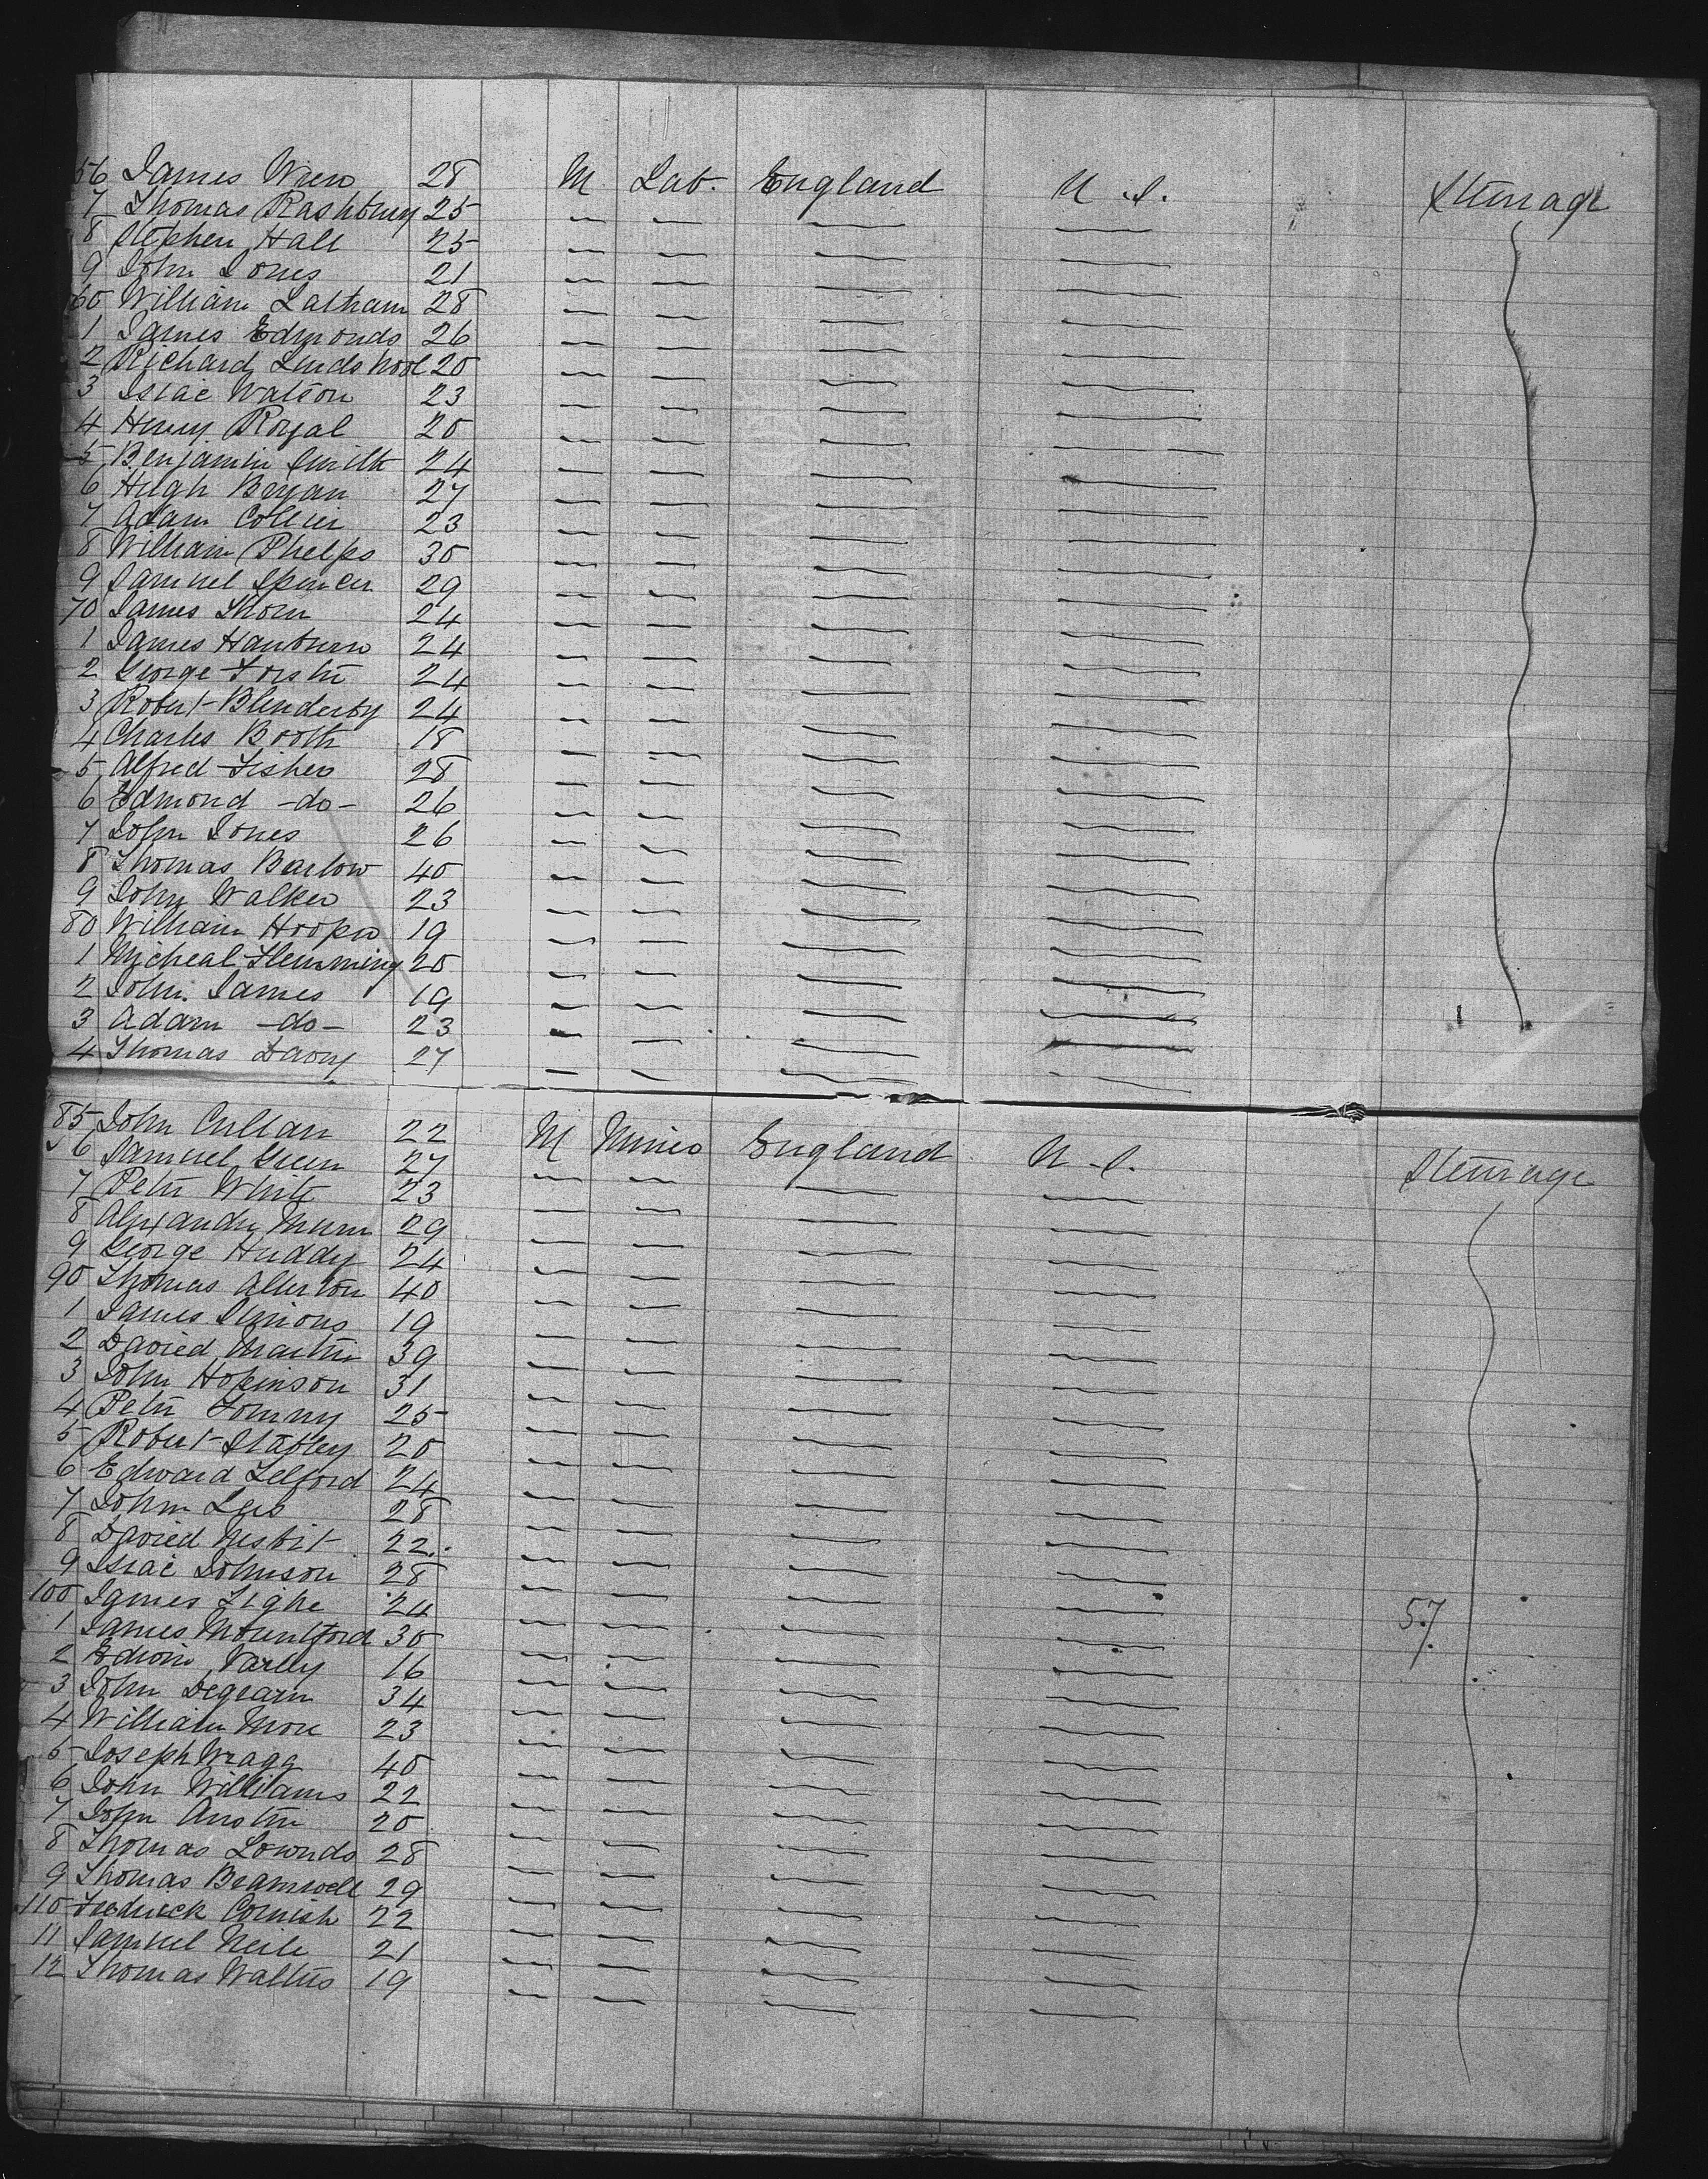 56 James Wren 28 M Lab. England U.S. Steerage
7 Thomas Rashbury 25
8 Stephen Hall 25
9 John Jones 21
60 William Latham 28
1 James Edmonds 26
2 Richard 20
3 Isiac Watson 23
4 Henry Royal 20
5 Benjamin Smith 24
6 Hugh Bryan 27
7 Adam Collier 23
8 William Phelps 30
9 Samuel Spencer 29
70 James Thorn 24
1 James 24
2 George Forster 24
3 Robert Blenderby 24
4 Charles Booth 18
5 Alfred Fisher 28
6 Edmond -do- 26
7 John Jones 26
8 Thomas Barlow 40
9 John Walker 23
80 William Hooper 19
1 Micheal Flemming 20
2 John James 19
3 Adam -do- 23
4 Thomas Davy 27
85 John Cullan 22 M Miner England U.S. Steerage
6 Samuel Green 27
7 Peter White 23
8 Alexander Munn 29
9 George Huddy 24
90 Thomas Allerton 40
1 James Simons 19
2 Davied Martin 39
3 John Hopinson 31
4 Peter Tommy 25
5 Robert Slatley 20
6 Edward Telford 24
7 John Lees 28
8 Davied Nesbit 22
9 Isiac Johnson 28
100 James Tighe 24
57
1 James Mountford 30
2 Edwin Varley 16
3 John Degearn 34
4 William More 23
5 Joseph Wragg 40
6 John Williams 22
7 John Austin 20
8 Thomas Lownds 28
9 Thomas Bramwell 29
110 Fredrick Cornish 22
11 Samuel Neile 21
12 Thomas Walters 19